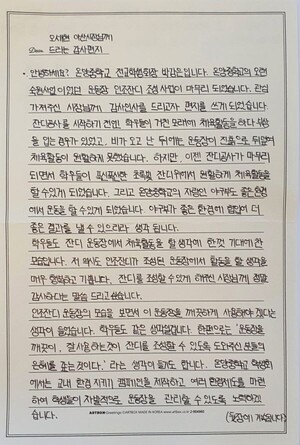 오세현 아산시장님께
Dear. 드리는 감사편지
· 안녕하세요? 온양중학교 전교학생회장 박강은입니다. 온양중학교의 오랜
숙원사업이었던 운동장 인조잔디 조성 사업이 마무리 되었습니다. 관심
가져주신 시장님께, 감사인사를 드리고자 편지를 쓰게 되었습니다.
잔디공사를 시작하기 전엔, 학우들이 거친 모래에 체육활동을 하다 부상
을 입는 경우가 있었고, 비가 오고 난 뒤에는 운동장이 진흙으로 뒤덮여
체육활동이 원활하지 못했습니다. 하지만, 이젠 잔디공사가 마무리
되면서 학우들이 푹신푹신한 초록빛 잔디위에서 원활하게 체육활동을
할 수 있게 되었습니다. 그리고 온양중학교의 자랑인 야구부도 좋은 환경
에서 운동을 할 수 있게 되었습니다. 야구부가 좋은 환경에 힘입어 더
좋은 결과를 낼 수 있으리라 생각 됩니다.
학우들도 잔디 운동장에서 체육활동을 할 생각에 한껏 기대에 찬
모습입니다. 저 역시도 인조잔디가 조성된 운동장에서 활동을 할 생각을
매우 행복하고 기쁩니다. 잔디를 조성할 수 있게 해주신 시장님께 정말
감사하다는 말씀 드리고 싶습니다.
인조잔디 운동장의 모습을 보면서 이 운동장을 깨끗하게 사용해야 겠다는
생각이 들었습니다. 학우들도 같은 생각일겁니다. 한편으로는 '운동장을
깨끗이, 잘 사용하는 것이 잔디를 조성할 수 있도록 도와주신 분들의
은혜를 갚는 것이다.' 라는 생각이 들기도 합니다. 온양중학교 학생회
에서는 교내 환경 지키기 캠페인을 시작하고 여러 환경제도를 마련
하여 학생들이 자발적으로 운동장을 관리할 수 있도록 노력하겠
습니다. (뒷장에 계속됩니다)
ARTBOX Greetings